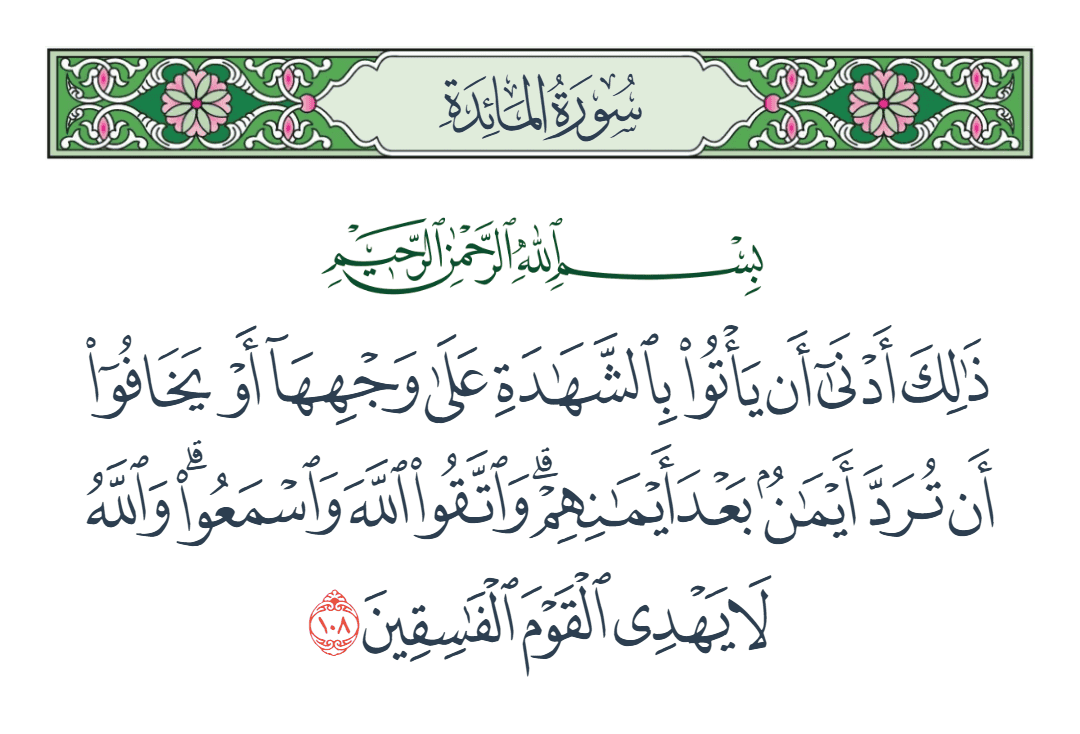 سُورَةُ المَائِدَةِ
بِسْمِ ٱللَّهِ ٱلرَّحْمَٰنِ ٱلرَّحِيمِ
ذَٰلِكَ أَدْنَىٰٓ أَن يَأْتُوا۟ بِٱلشَّهَٰدَةِ عَلَىٰ وَجْهِهَآ أَوْ يَخَافُوٓا۟
أَن تُرَدَّ أَيْمَٰنٌۢ بَعْدَ أَيْمَٰنِهِمْ ۗ وَٱتَّقُوا۟ ٱللَّهَ وَٱسْمَعُوا۟ ۗ وَٱللَّهُ
لَا يَهْدِى ٱلْقَوْمَ ٱلْفَٰسِقِينَ ١٠٨